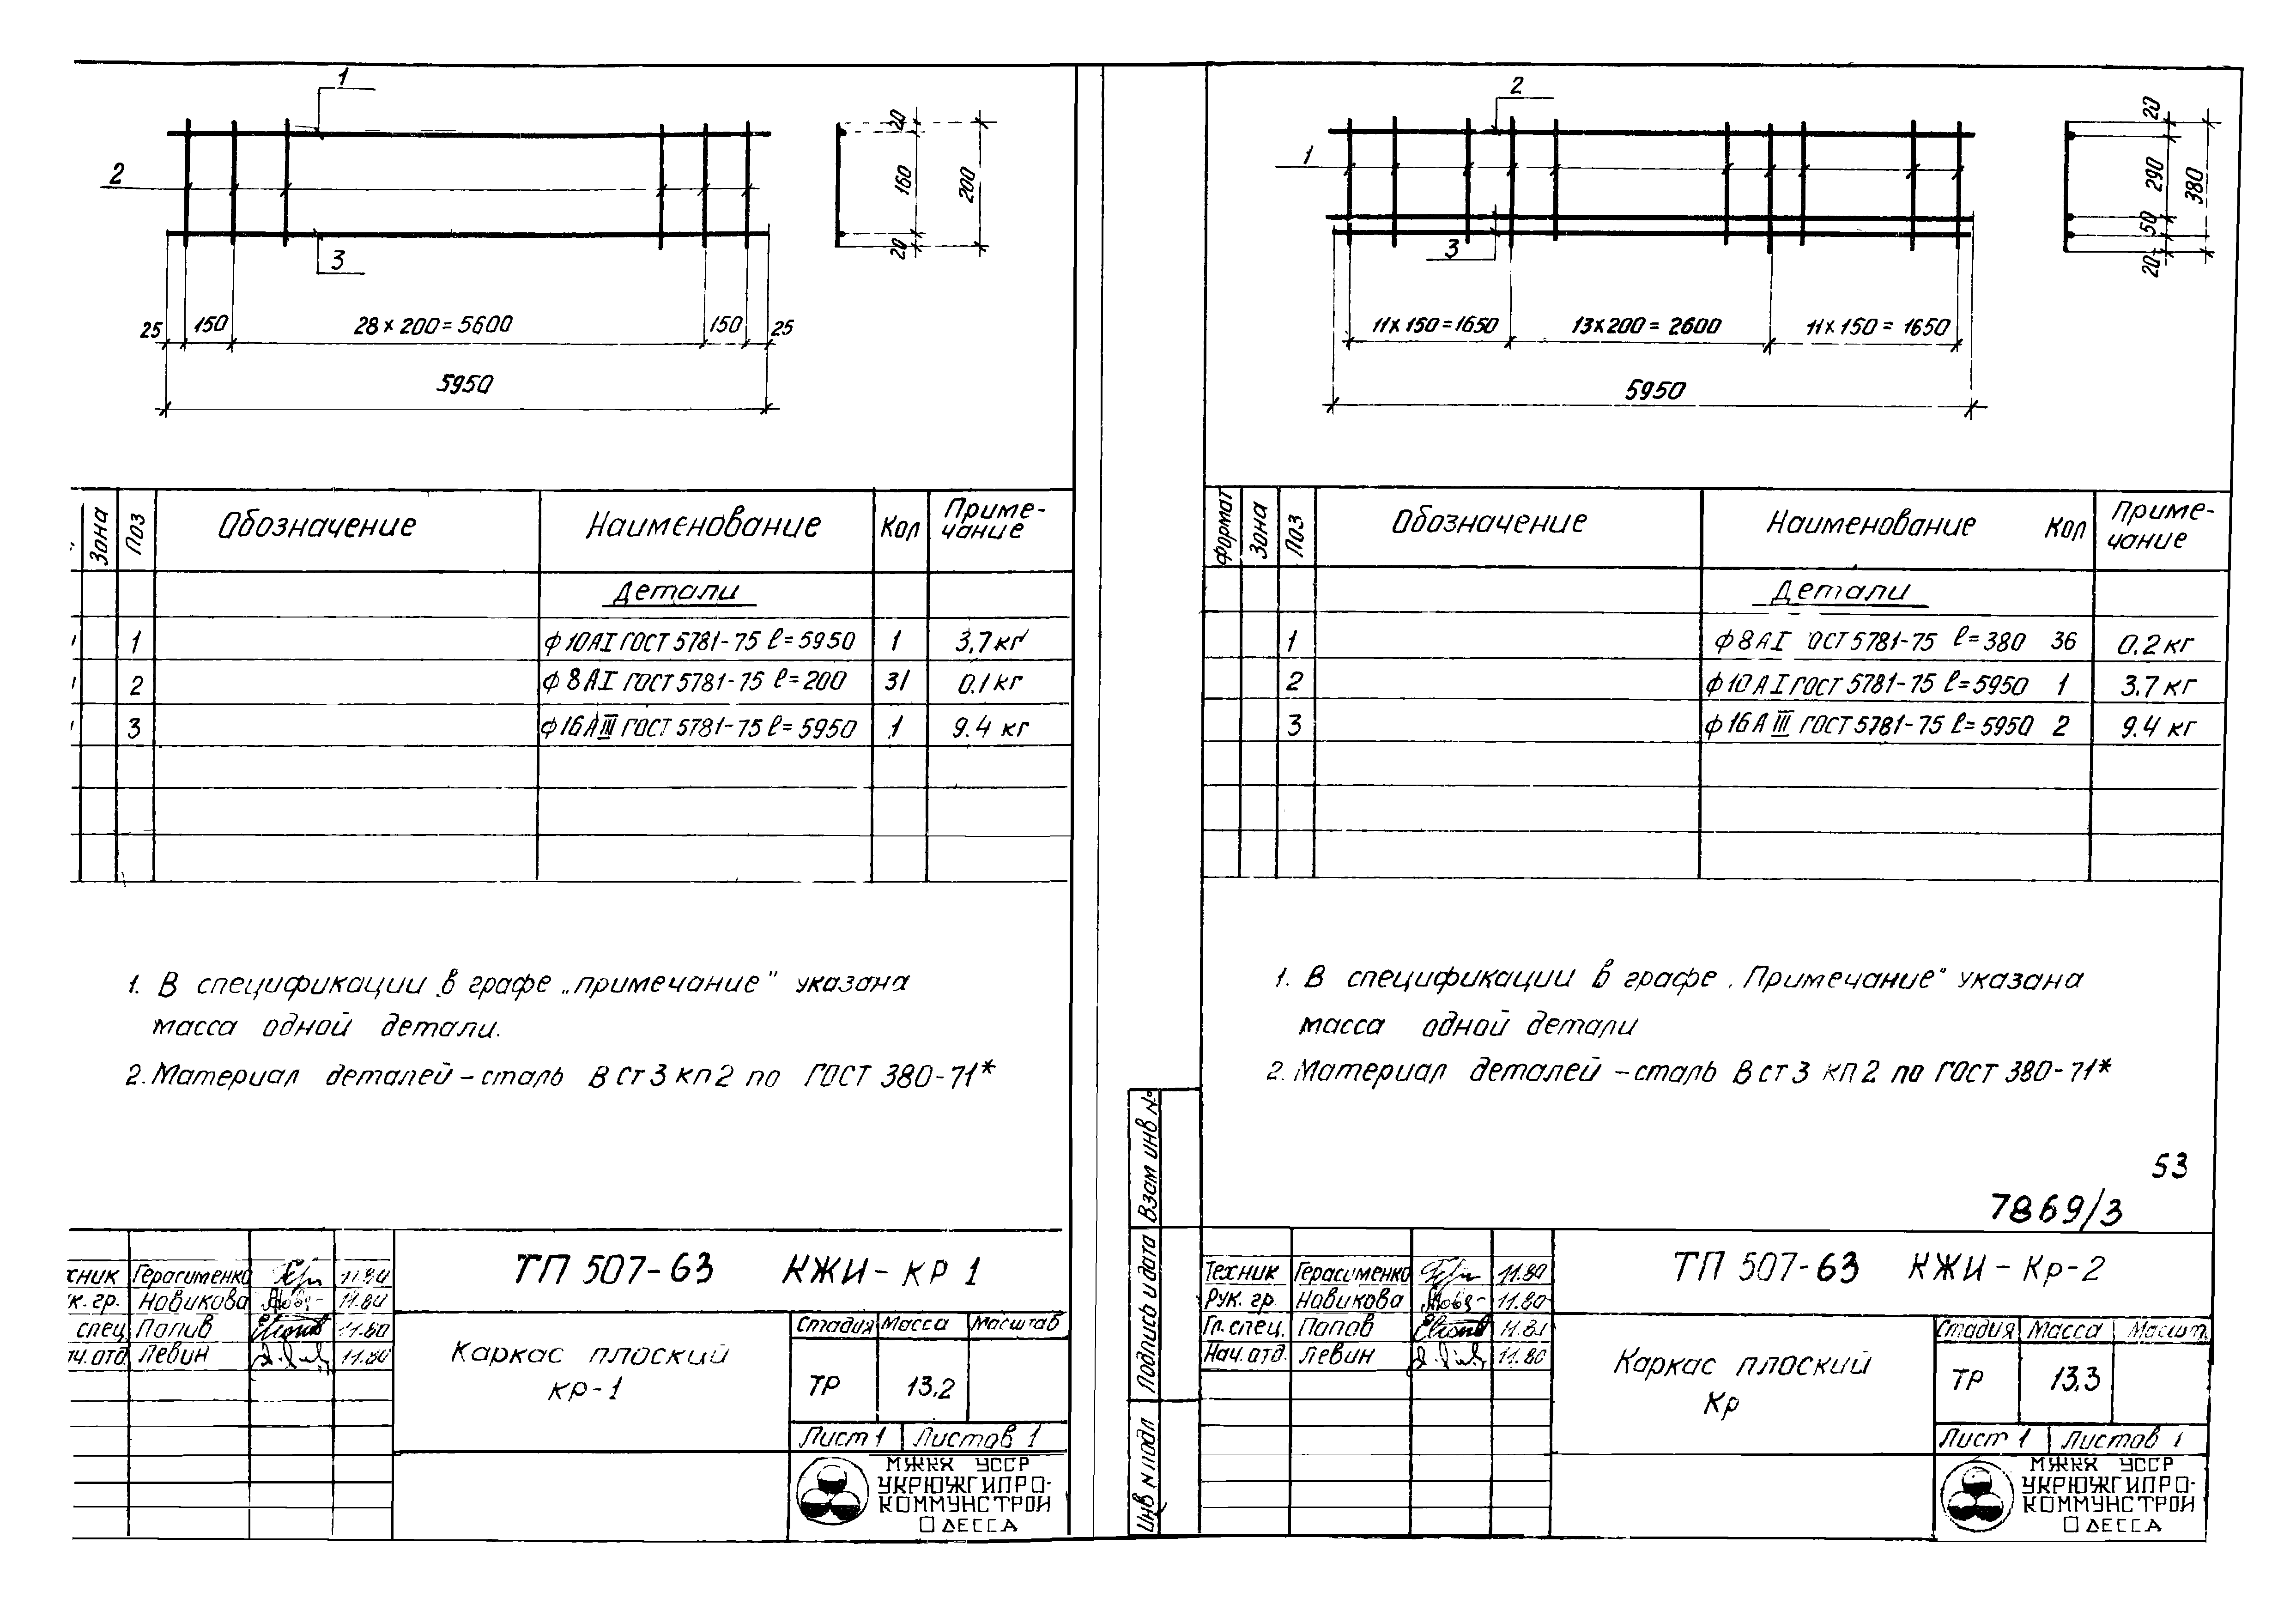 1
2
3
20
160
20
200
25
150
28 × 200 = 5600
150
25
5950
Зона
Поз
Обозначение
Наименование
Кол
Приме-
чание
Детали
1 ф10АI ГОСТ 5781-75 ℓ=5950 1 3,7кг
2 ф8АI ГОСТ 5781-75 ℓ=200 31 0.1кг
3 ф16АIII ГОСТ 5781-75 ℓ=5950 1 9.4 кг
1. В спецификации в графе „примечание" указана
масса одной детали.
2. Материал деталей – сталь В ст 3 кп2 по ГОСТ 380-71*
хник Герасименко 11.80
к. гр. Новикова 11.80
спец. Попив 11.80
ач. отд. Левин 11.80
ТП 507-63 КЖИ-КР 1
Каркас плоский
КР-1
Стадия Масса Масштаб
ТР 13,2
Лист 1 Листов 1
МЖКХ УССР
УКРЮЖГИПРО-
КОММУНСТРОЙ
ОДЕССА
2
1
3
20
290
50
20
380
11×150=1650
13×200=2600
11×150=1650
5950
Формат
Зона
Поз
Обозначение
Наименование
Кол
Приме-
чание
Детали
1 ф8АI ОСТ 5781-75 ℓ=380 36 0.2 кг
2 ф10АI ГОСТ 5781-75 ℓ=5950 1 3.7 кг
3 ф16АIII ГОСТ 5781-75 ℓ=5950 2 9.4 кг
1. В спецификации в графе „Примечание" указана
масса одной детали
2. Материал деталей – сталь В ст 3 кп 2 по ГОСТ 380-71*
53
7869/3
Взам инв №
Подпись и дата
Инв N подл
Техник Герасименко 11.80
Рук. гр. Новикова 11.80
Гл. спец. Попов 11.81
Нач. отд. Левин 11.80
ТП 507-63 КЖИ-Кр-2
Каркас плоский
Кр
Стадия Масса Масшт.
ТР 13,3
Лист 1 Листов 1
МЖКХ УССР
УКРЮЖГИПРО-
КОММУНСТРОЙ
ОДЕССА